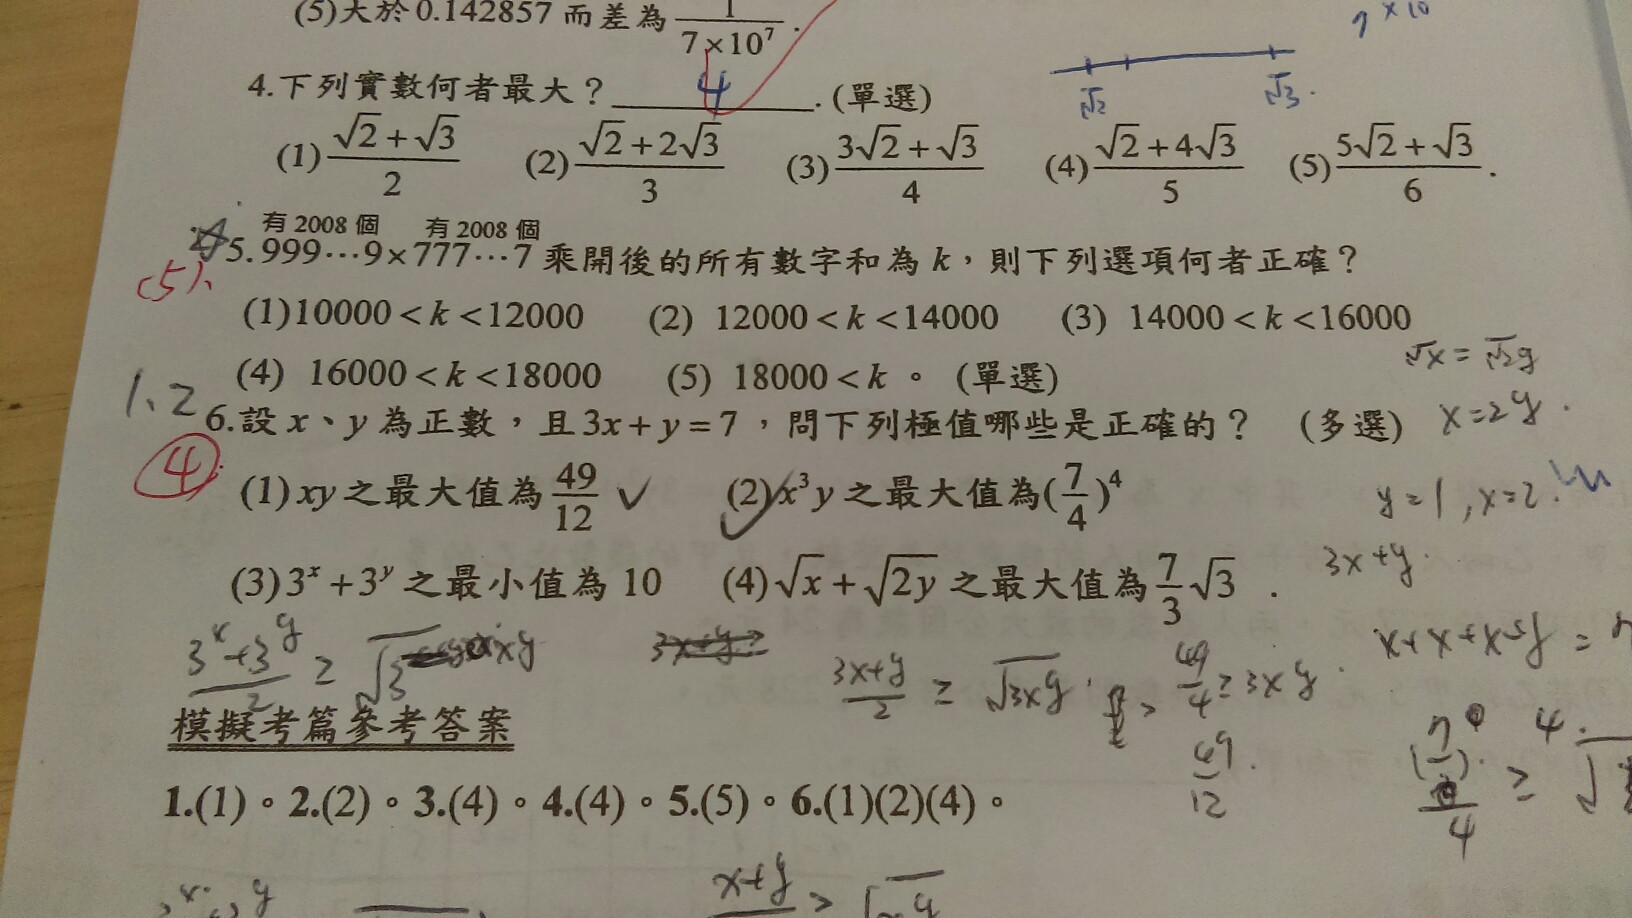 (5)大於0.142857而差為 1/(7×10⁷).
7×10
4.下列實數何者最大? 4 .(單選)
√2 √3.
(1) (√2+√3)/2 (2) (√2+2√3)/3 (3) (3√2+√3)/4 (4) (√2+4√3)/5 (5) (5√2+√3)/6 .
有2008個 有2008個
5.999⋯9×777⋯7乘開後的所有數字和為k,則下列選項何者正確?
(5)、
(1)10000<k<12000 (2) 12000<k<14000 (3) 14000<k<16000
(4) 16000<k<18000 (5) 18000<k。(單選)
√x=√2y
1、2
6.設x、y為正數,且3x+y=7,問下列極值哪些是正確的? (多選)
x=2y.
4
(1)xy之最大值為49/12 ✓ (2)x³y之最大值為(7/4)⁴
y=1,x=2.
(3)3ˣ+3ʸ之最小值為10 (4)√x+√2y之最大值為(7/3)√3 .
3x+y.
(3ˣ+3ʸ)/2 ≥ √3 xy
3x+y
(3x+y)/2 ≥ √3xy. 49/4≥3xy.
x+x+x+y=7
模擬考篇參考答案
49/12.
4
1.(1)。2.(2)。3.(4)。4.(4)。5.(5)。6.(1)(2)(4)。
x+y